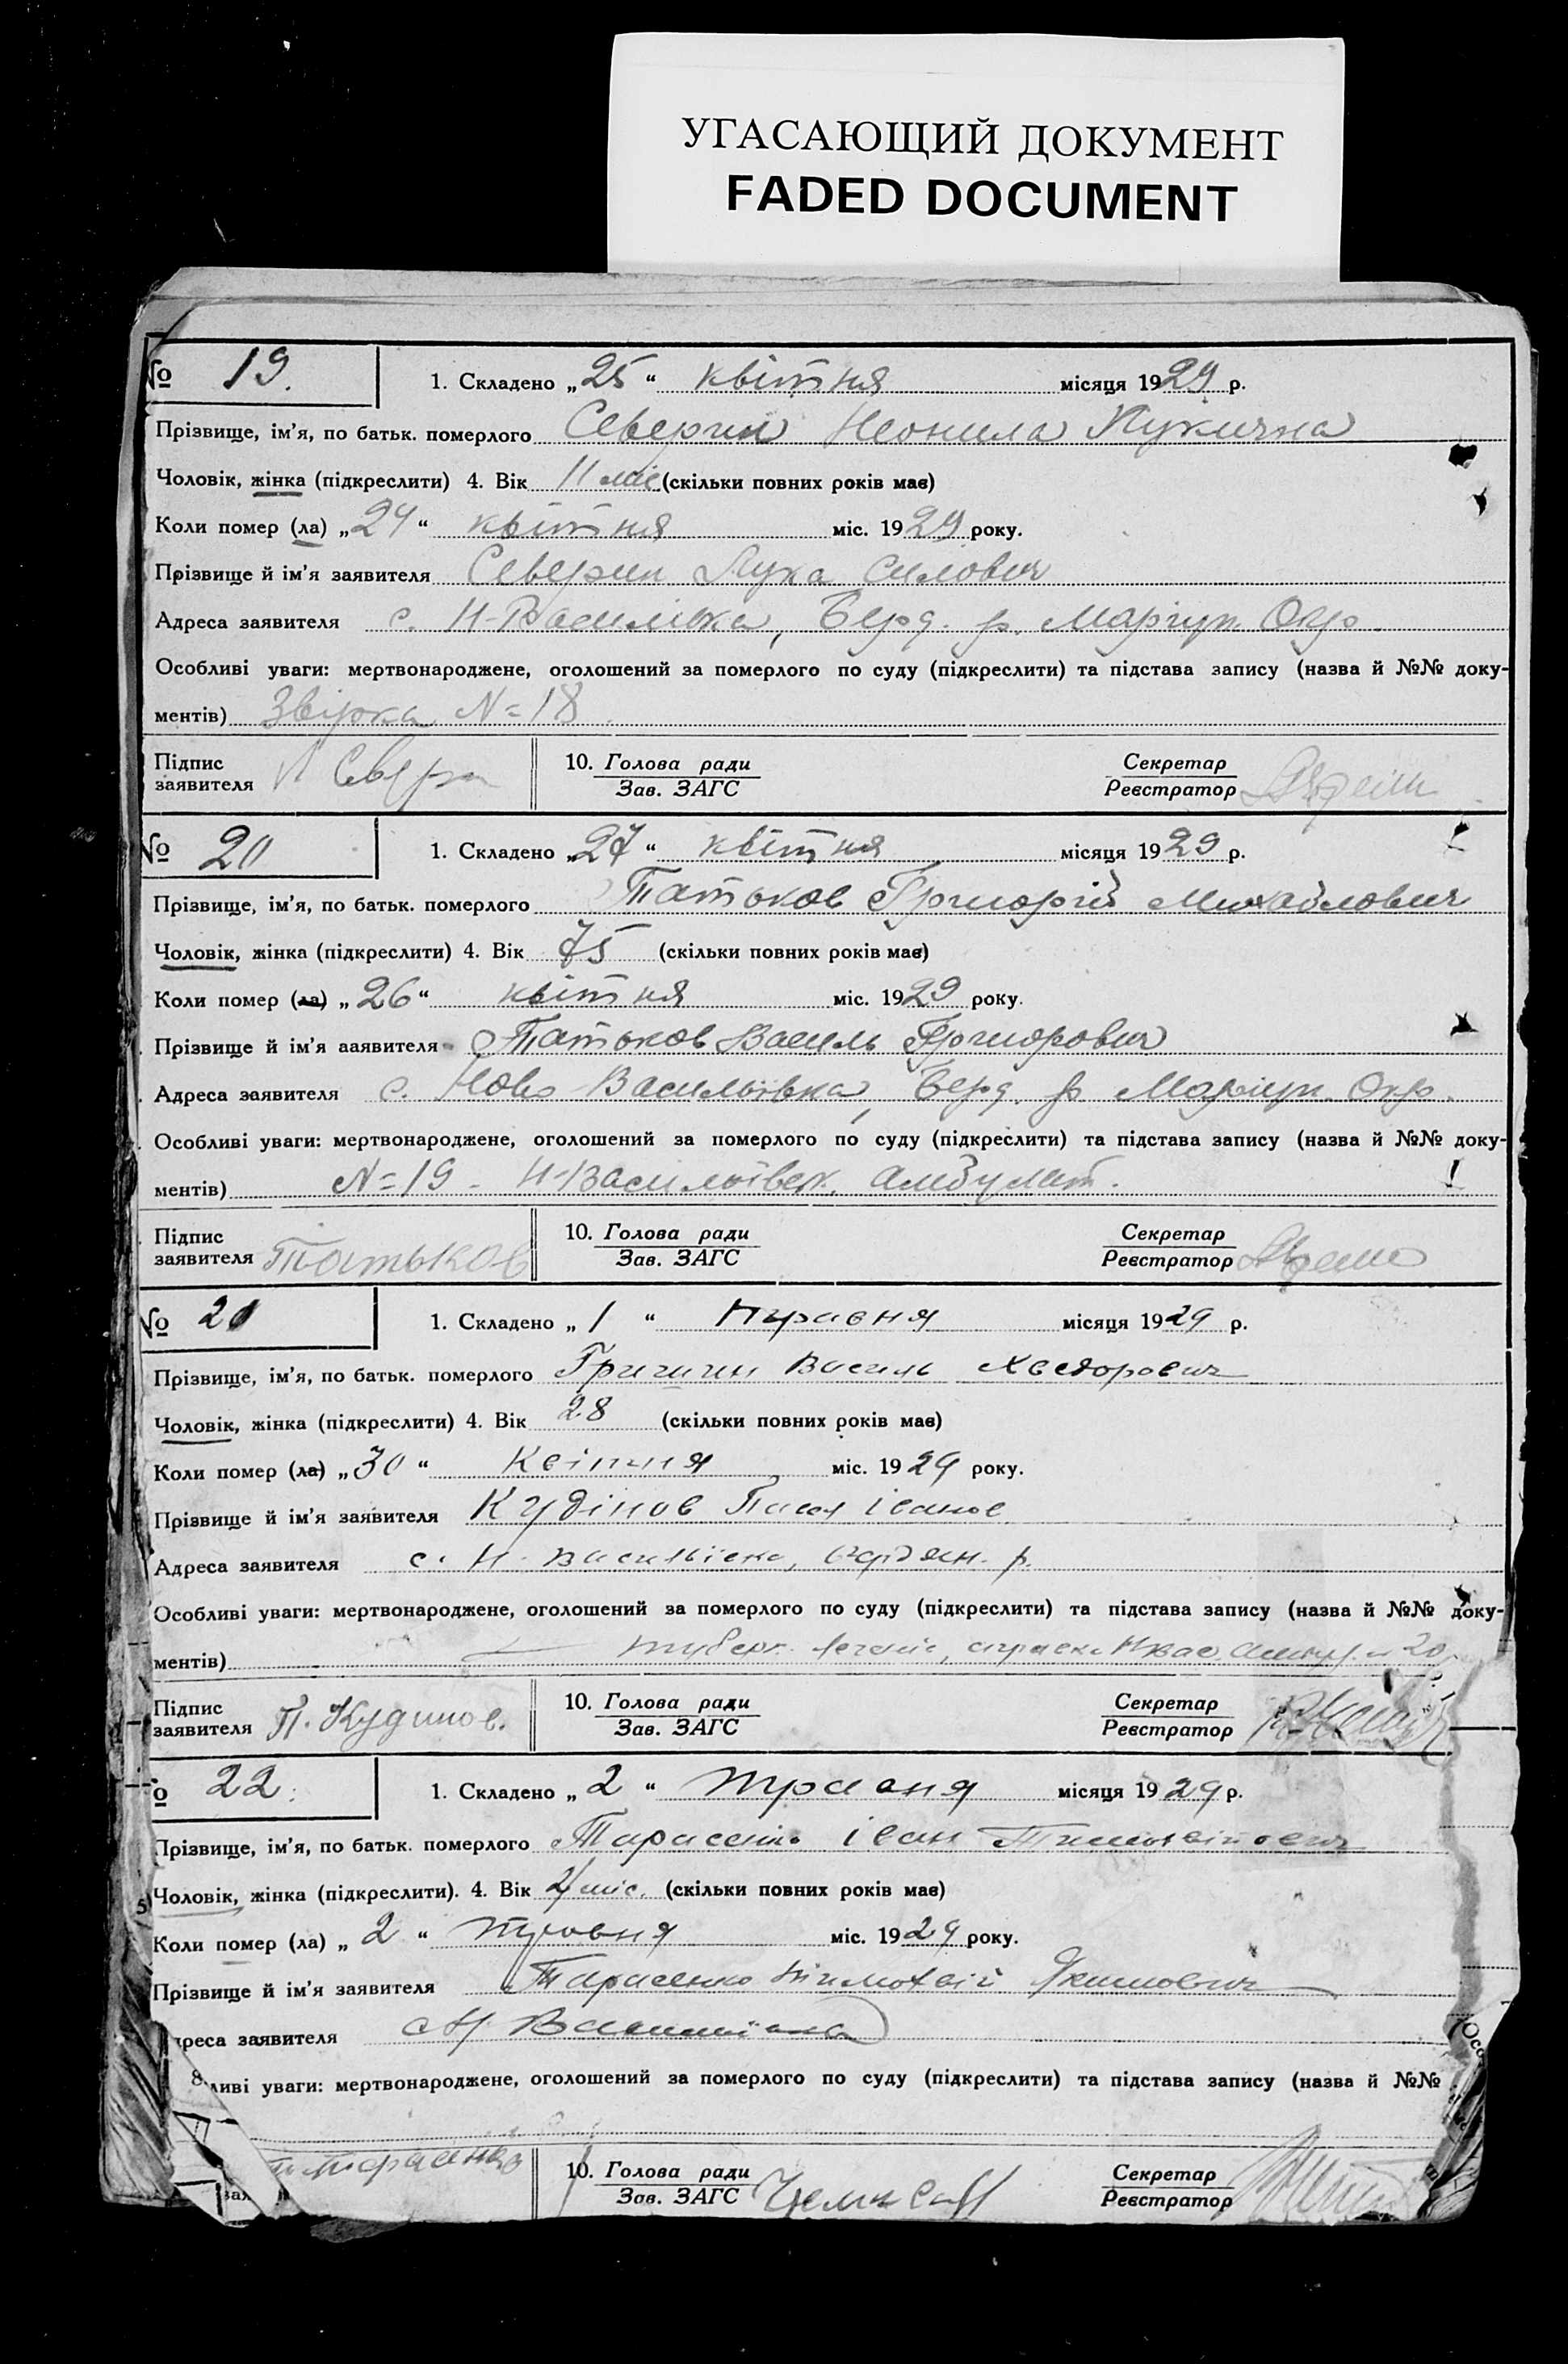 УГАСАЮЩИЙ ДОКУМЕНТ
FADED DOCUMENT
№ 19. 1. Складено „25“ квітня місяця 1929 р.
Прізвище, ім'я, по батьк. померлого Северин Неонила Лукична
Чоловік, жінка (підкреслити) 4. Вік 11 міс (скільки повних років має)
Коли помер (ла) „24“ квітня міс. 1929 року.
Прізвище й ім'я заявителя Северин Лука Силович
Адреса заявителя с. Н-Василівка, Берд. р. Маріуп. Окр.
Особливі уваги: мертвонароджене, оголошений за померлого по суду (підкреслити) та підстава запису (назва й №№ доку-
ментів) Звірка N=18
Підпис заявителя Л Севери 10. Голова ради Зав. ЗАГС Секретар Реєстратор
№ 20 1. Складено „27“ квітня місяця 1929 р.
Прізвище, ім'я, по батьк. померлого Татьков Григорій Михайлович
Чоловік, жінка (підкреслити) 4. Вік 75 (скільки повних років має)
Коли помер (ла) „26“ квітня міс. 1929 року.
Прізвище й ім'я заявителя Татьков Василь Григорович
Адреса заявителя с. Ново-Васильівка, Берд. р Маріуп. Окр.
Особливі уваги: мертвонароджене, оголошений за померлого по суду (підкреслити) та підстава запису (назва й №№ доку-
ментів) N=19 - Н-Васильівск. амбулат.
Підпис заявителя Татьков 10. Голова ради Зав. ЗАГС Секретар Реєстратор
№ 21 1. Складено „1“ травня місяця 1929 р.
Прізвище, ім'я, по батьк. померлого Григин Василь Хведорович
Чоловік, жінка (підкреслити) 4. Вік 28 (скільки повних років має)
Коли помер (ла) „30“ Квітня міс. 1929 року.
Прізвище й ім'я заявителя Кудінов Іванов
Адреса заявителя с. Н. Васильівка, Бердян. р.
Особливі уваги: мертвонароджене, оголошений за померлого по суду (підкреслити) та підстава запису (назва й №№ доку-
ментів) туберк. легенів, справка Нвас. амбул. 20
Підпис заявителя П. Кудинов. 10. Голова ради Зав. ЗАГС Секретар Реєстратор
22. 1. Складено „2“ травня місяця 1929 р.
Прізвище, ім'я, по батьк. померлого Тарасенко Іван Тимохвійович
Чоловік, жінка (підкреслити). 4. Вік міс. (скільки повних років має)
Коли помер (ла) „2“ травня міс. 1929 року.
Прізвище й ім'я заявителя Тарасенко Тимохвій Якимович
дреса заявителя с Н Васильівка
8. ливі уваги: мертвонароджене, оголошений за померлого по суду (підкреслити) та підстава запису (назва й №№
Тарасенко 10. Голова ради Зав. ЗАГС Секретар Реєстратор